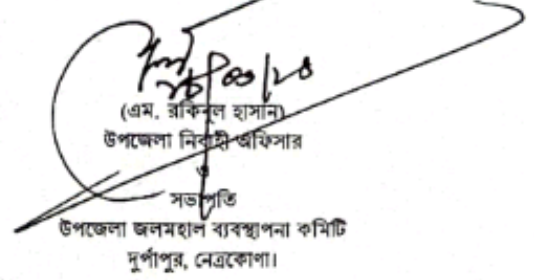 (এম. রকিবুল হাসান)
উপজেলা নির্বাহী অফিসার
ও
সভাপতি
উপজেলা জলমহাল ব্যবস্থাপনা কমিটি
দুর্গাপুর, নেত্রকোণা।